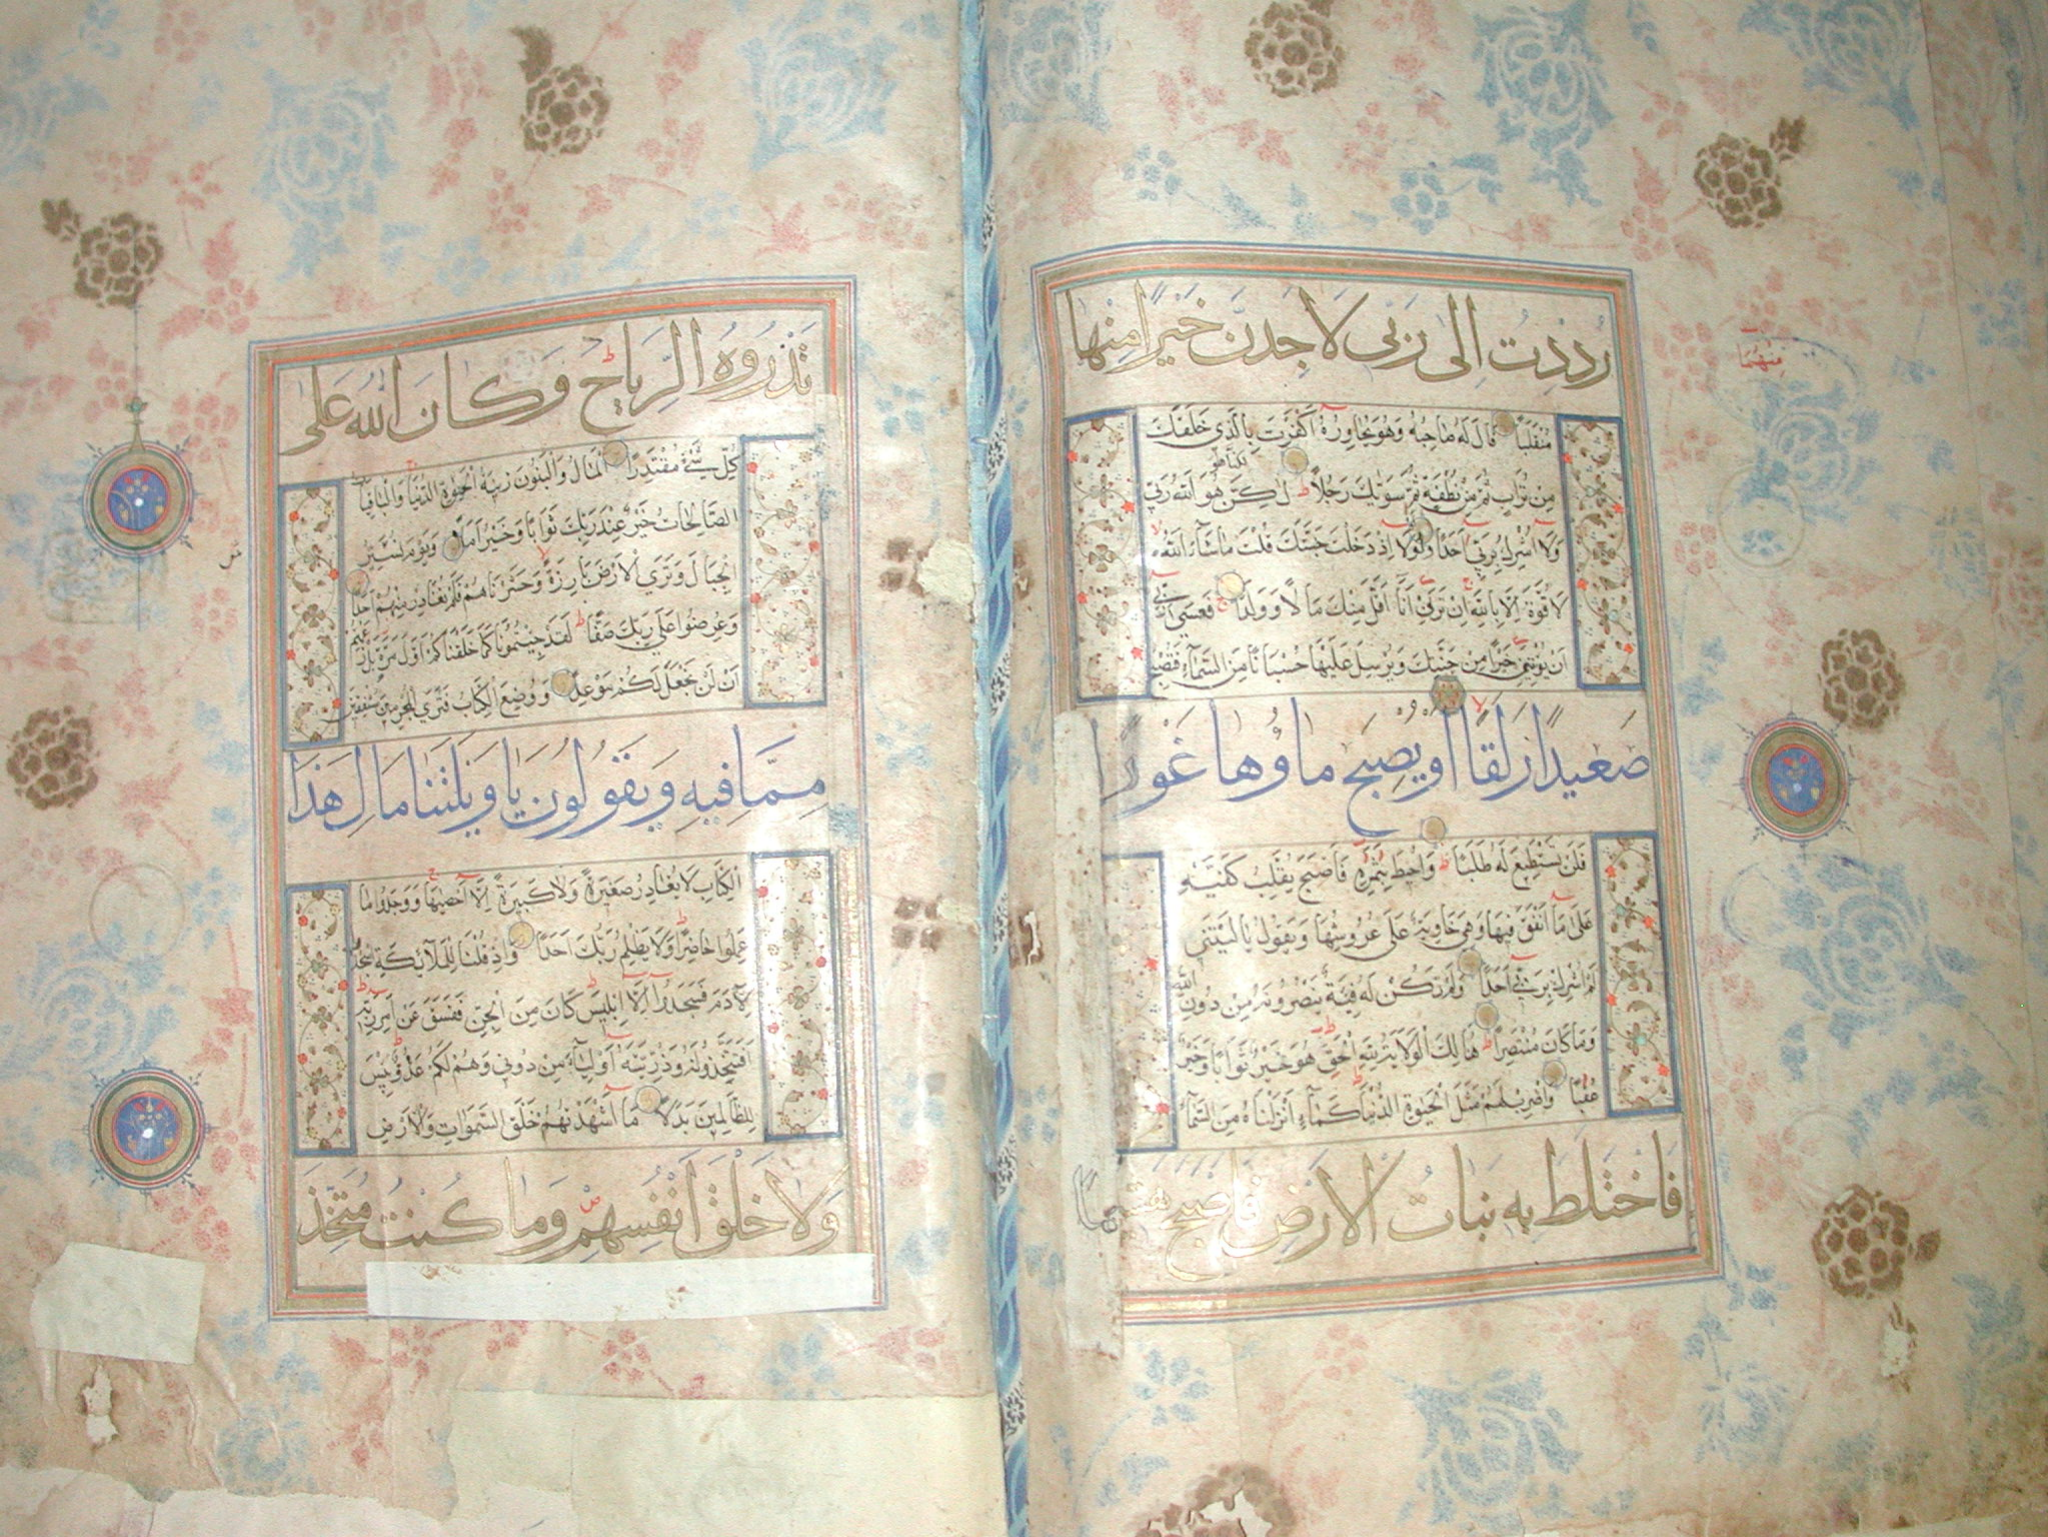 رُدِدْتُ اِلٰى رَبّٖى لَاَجِدَنَّ خَيْرًا مِنْهَا
مُنْقَلَبًا قَالَ لَهُ صَاحِبُهُ وَهُوَ يُحَاوِرُهُ اَكَفَرْتَ بِالَّذِي خَلَقَكَ
مِنْ تُرَابٍ ثُمَّ مِنْ نُطْفَةٍ ثُمَّ سَوّٰيكَ رَجُلًا ط لٰكِنَّ هُوَ اللّٰهُ رَبِّي
وَلَا اُشْرِكُ بِرَبِّي اَحَدًا وَلَوْلَا اِذْ دَخَلْتَ جَنَّتَكَ قُلْتَ مَا شَاءَ اللّٰهُ لا
لَا قُوَّةَ اِلَّا بِاللّٰهِ اِنْ تَرَنِ اَنَا اَقَلَّ مِنْكَ مَالًا وَوَلَدًا ج فَعَسٰى رَبِّي
اَنْ يُؤْتِيَنِ خَيْرًا مِنْ جَنَّتِكَ وَيُرْسِلَ عَلَيْهَا حُسْبَانًا مِنَ السَّمَاءِ فَتُصْبِحَ
صَعِيدًا زَلَقًا لا اَوْ يُصْبِحَ مَاؤُهَا غَوْرًا
فَلَنْ تَسْتَطِيعَ لَهُ طَلَبًا وَاُحِيطَ بِثَمَرِهِ فَاَصْبَحَ يُقَلِّبُ كَفَّيْهِ
عَلٰى مَا اَنْفَقَ فِيهَا وَهِيَ خَاوِيَةٌ عَلٰى عُرُوشِهَا وَيَقُولُ يَا لَيْتَنِي
لَمْ اُشْرِكْ بِرَبِّي اَحَدًا وَلَمْ تَكُنْ لَهُ فِئَةٌ يَنْصُرُونَهُ مِنْ دُونِ اللّٰهِ
وَمَا كَانَ مُنْتَصِرًا ط هُنَالِكَ الْوَلَايَةُ لِلّٰهِ الْحَقِّ هُوَ خَيْرٌ ثَوَابًا وَخَيْرٌ
عُقْبًا وَاضْرِبْ لَهُمْ مَثَلَ الْحَيٰوةِ الدُّنْيَا كَمَاءٍ اَنْزَلْنَاهُ مِنَ السَّمَاءِ
فَاخْتَلَطَ بِهِ نَبَاتُ الْاَرْضِ فَاَصْبَحَ هَشِيمًا
مِنْهُمَا
تَذْرُوهُ الرِّيَاحُ ط وَكَانَ اللّٰهُ عَلٰى
كُلِّ شَيْءٍ مُقْتَدِرًا اَلْمَالُ وَالْبَنُونَ زِينَةُ الْحَيٰوةِ الدُّنْيَا ج وَالْبَاقِيَاتُ
الصَّالِحَاتُ خَيْرٌ عِنْدَ رَبِّكَ ثَوَابًا وَخَيْرٌ اَمَلًا وَيَوْمَ نُسَيِّرُ
الْجِبَالَ وَتَرَى الْاَرْضَ بَارِزَةً وَحَشَرْنَاهُمْ فَلَمْ نُغَادِرْ مِنْهُمْ اَحَدًا
وَعُرِضُوا عَلٰى رَبِّكَ صَفًّا ط لَقَدْ جِئْتُمُونَا كَمَا خَلَقْنَاكُمْ اَوَّلَ مَرَّةٍ بَلْ زَعَمْتُمْ
اَنْ لَنْ نَجْعَلَ لَكُمْ مَوْعِدًا وَوُضِعَ الْكِتَابُ فَتَرَى الْمُجْرِمِينَ مُشْفِقِينَ
مِمَّا فِيهِ وَيَقُولُونَ يَا وَيْلَتَنَا مَالِ هٰذَا
الْكِتَابِ لَا يُغَادِرُ صَغِيرَةً وَلَا كَبِيرَةً اِلَّا اَحْصٰيهَا ج وَوَجَدُوا مَا
عَمِلُوا حَاضِرًا ط وَلَا يَظْلِمُ رَبُّكَ اَحَدًا وَاِذْ قُلْنَا لِلْمَلٰئِكَةِ اسْجُدُوا
لِاٰدَمَ فَسَجَدُوا اِلَّا اِبْلِيسَ ط كَانَ مِنَ الْجِنِّ فَفَسَقَ عَنْ اَمْرِ رَبِّهِ ط
اَفَتَتَّخِذُونَهُ وَذُرِّيَّتَهُ اَوْلِيَاءَ مِنْ دُونِي وَهُمْ لَكُمْ عَدُوٌّ ط بِئْسَ
لِلظَّالِمِينَ بَدَلًا مَا اَشْهَدْتُهُمْ خَلْقَ السَّمٰوَاتِ وَالْاَرْضِ
وَلَا خَلْقَ اَنْفُسِهِمْ ص وَمَا كُنْتُ مُتَّخِذَ